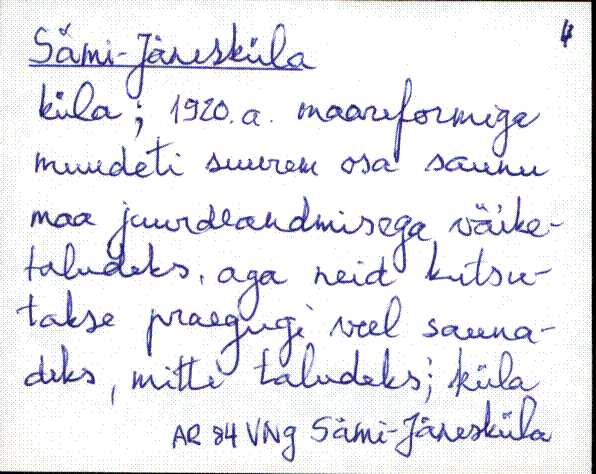 4
Sämi-Jäneskǜla
küla; 1920. a. maareformiga
muudeti suurem osa saunu
maa juurdeandmisega väike-
taludeks, aga neid kutsu-
takse praegugi veel sauna-
deks, mitte taludeks; küla
AR 84 VNg Sämi-Jänesküla